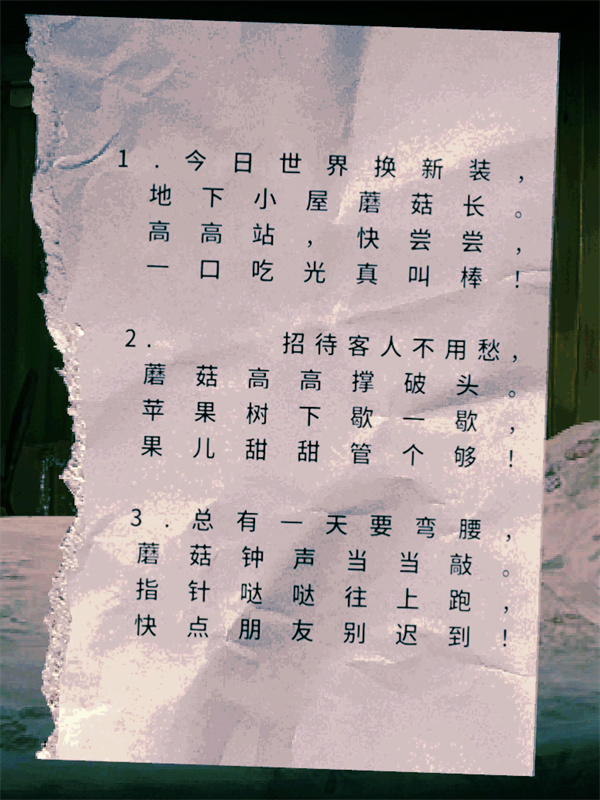 1.今日世界换新装，
地下小屋蘑菇长。
高高站，快尝尝，
一口吃光真叫棒！
2.招待客人不用愁，
蘑菇高高撑破头。
苹果树下歇一歇，
果儿甜甜管个够！
3.总有一天要弯腰，
蘑菇钟声当当敲。
指针哒哒往上跑，
快点朋友别迟到！